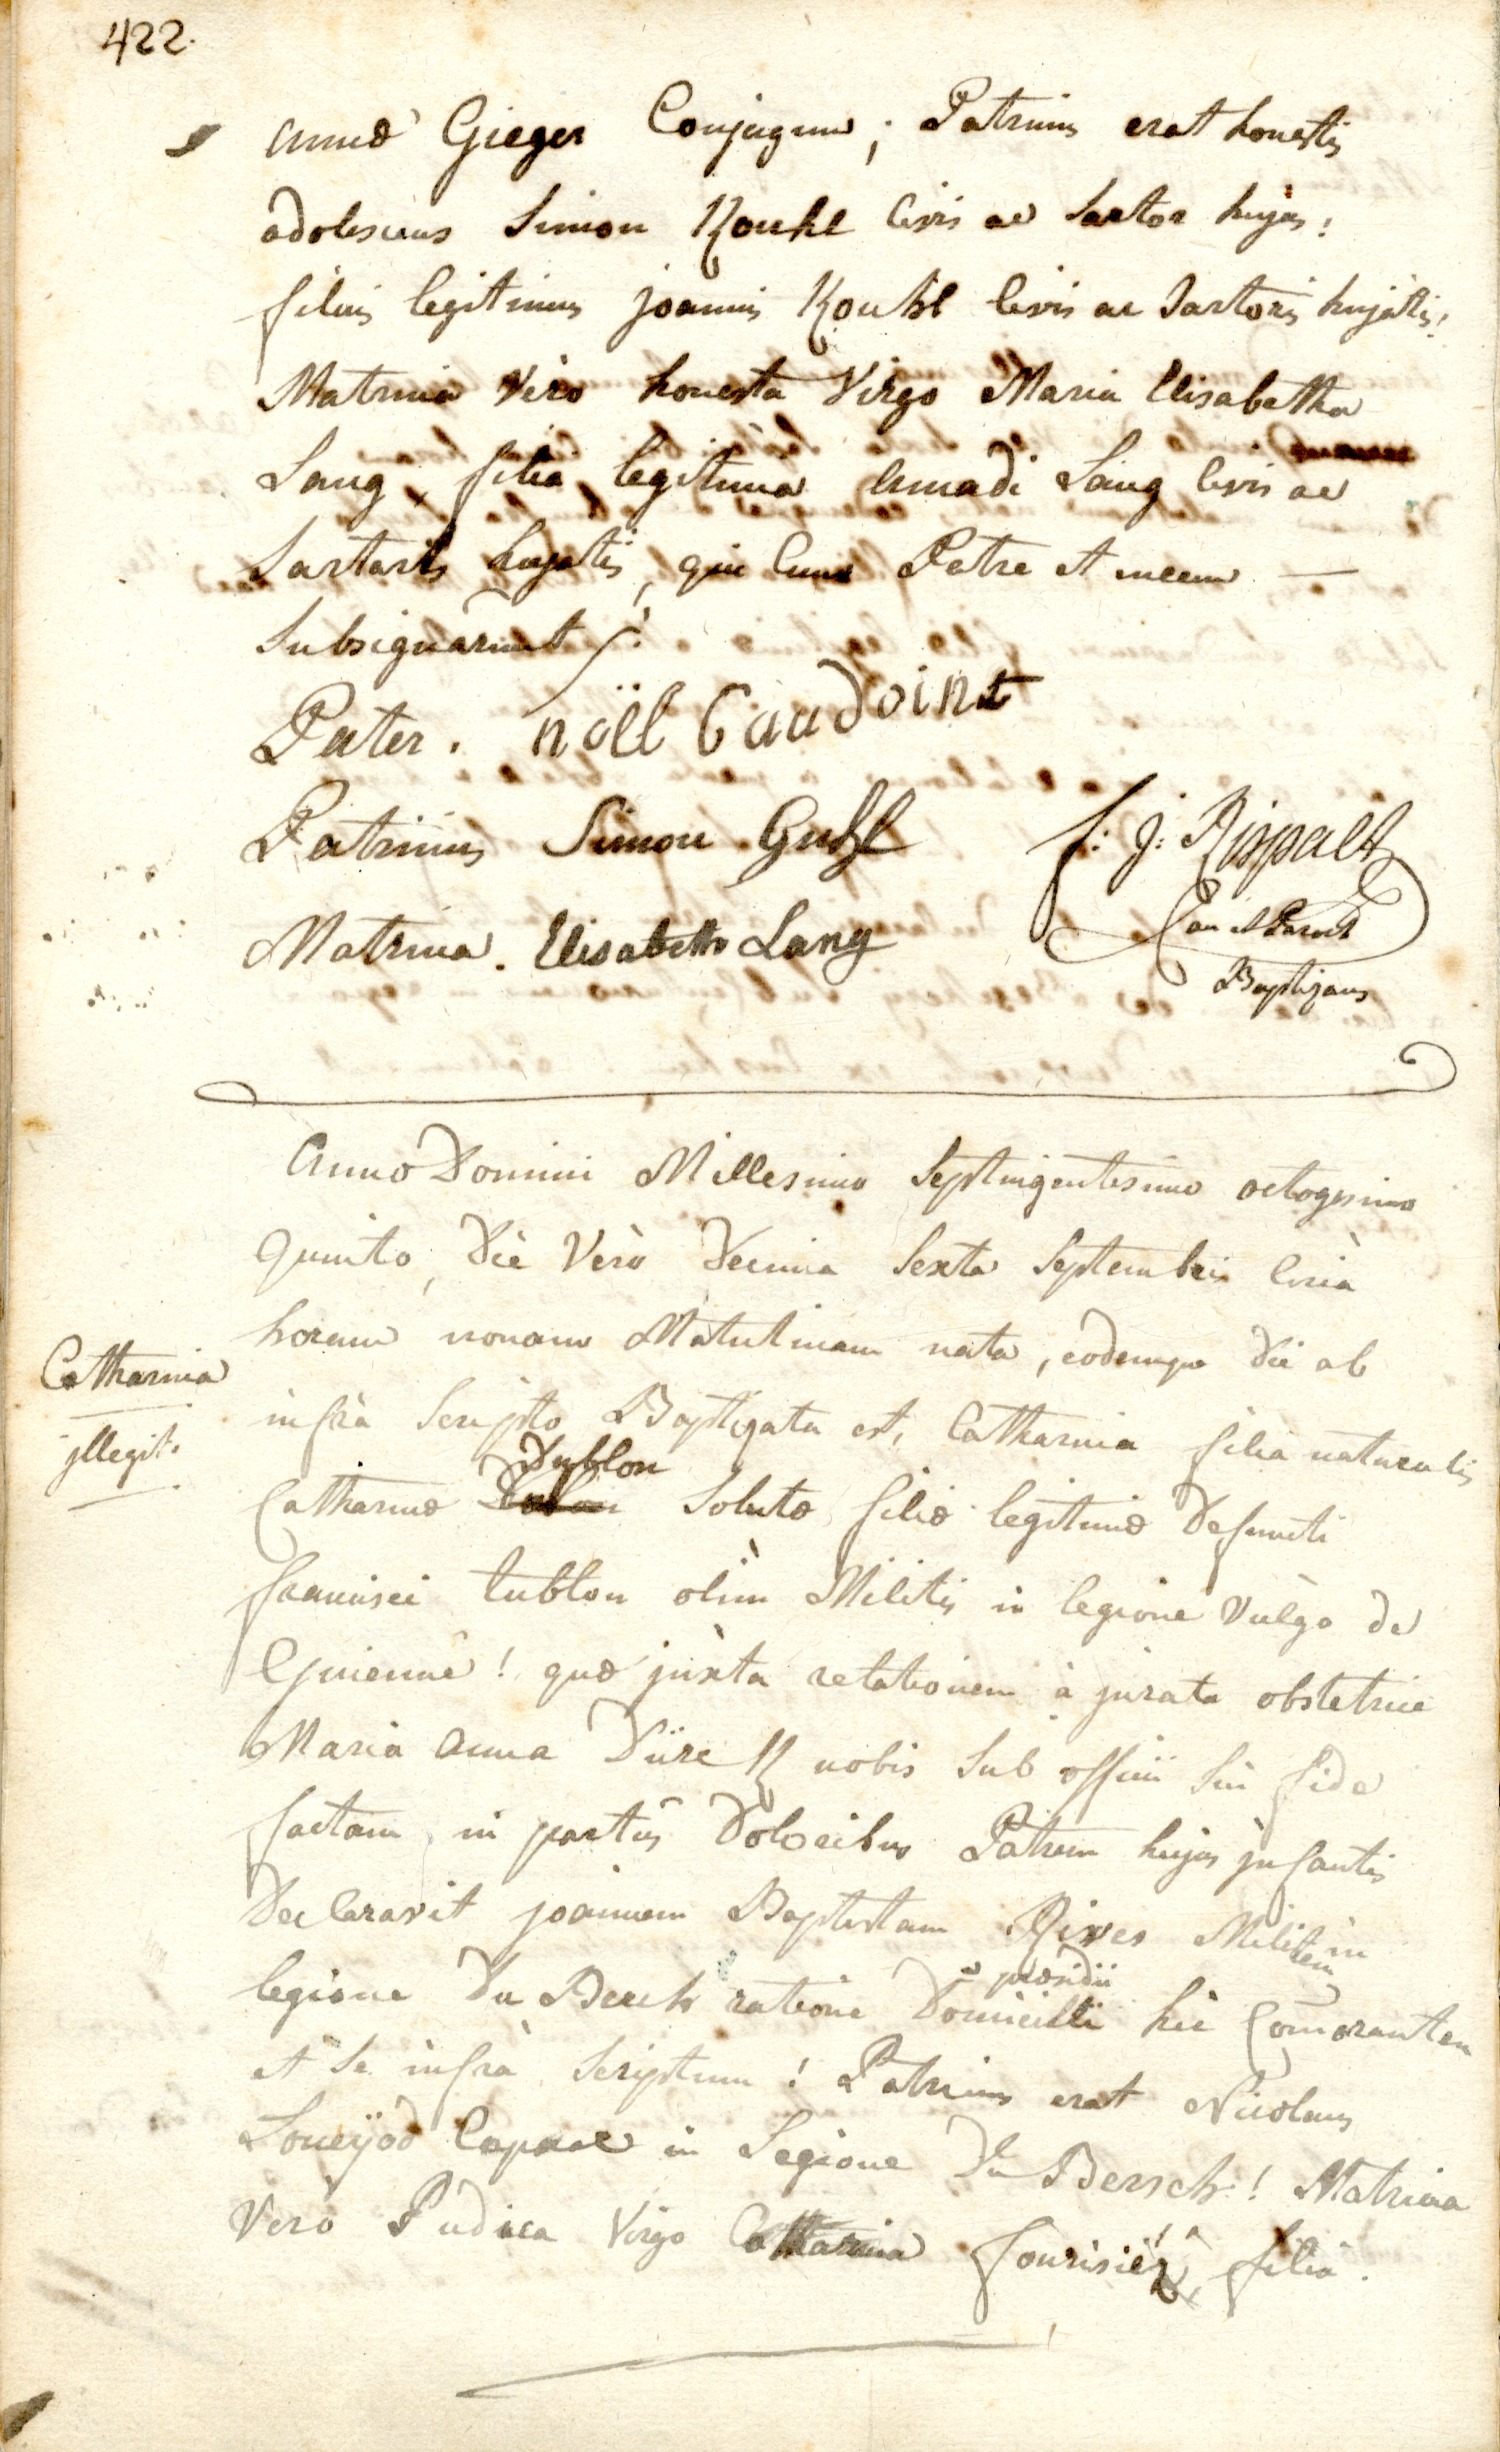 422.
annæ Gieger Conjugum; Patrinus erat honestus
adolescens Simon Kouhl Civis ac Sartor hujas!
filius legitimus joannis Kouhl Civis ac Sartoris hujatis!
Matrina Vero honesta Virgo Maria Elisabetha
Lang filia legitima amadi Lang Civis ac
Sartoris hujatis, qui Cum Patre et mecum —
Subsignarunt
Pater. nöll Baudoint
Patrinus Simon Guhl
f: J: Rippalt
Can et Paroch
Matrina. Elisabetha Lang
Baptizans
Anno Domini Millesimo Septingentesimo octogesimo
Quinto, Diè Verò Decima Sexta Septembris Circà
horam nonam Matutinam nata, eodemque Die ab
Catharina
infrà Scripto Baptizata est, Catharina filia naturalis
jllegit.
Dublon
Catharinæ Solutæ filiæ legitimæ Defuncti
francisci tublon olim Militis in legione Vulgo de
Guienne! quæ juxta relationem à jurata obstetrice
Maria anna Dürck nobis Sub officii Sui fide
factam, in partûs Doloribus Patrem hujus jnfantis
Declaravit joannem Baptistam Rives Militem in
præsidii
legione Du Berch ratione Domicilii hic Comorantem
et Se infrà Scriptum! Patrinus erat Nicolaus
Loueyod Caporal in Legione Du Bersch! Matrina
Verò Pudica Virgo Catharina fourisiér, filia.